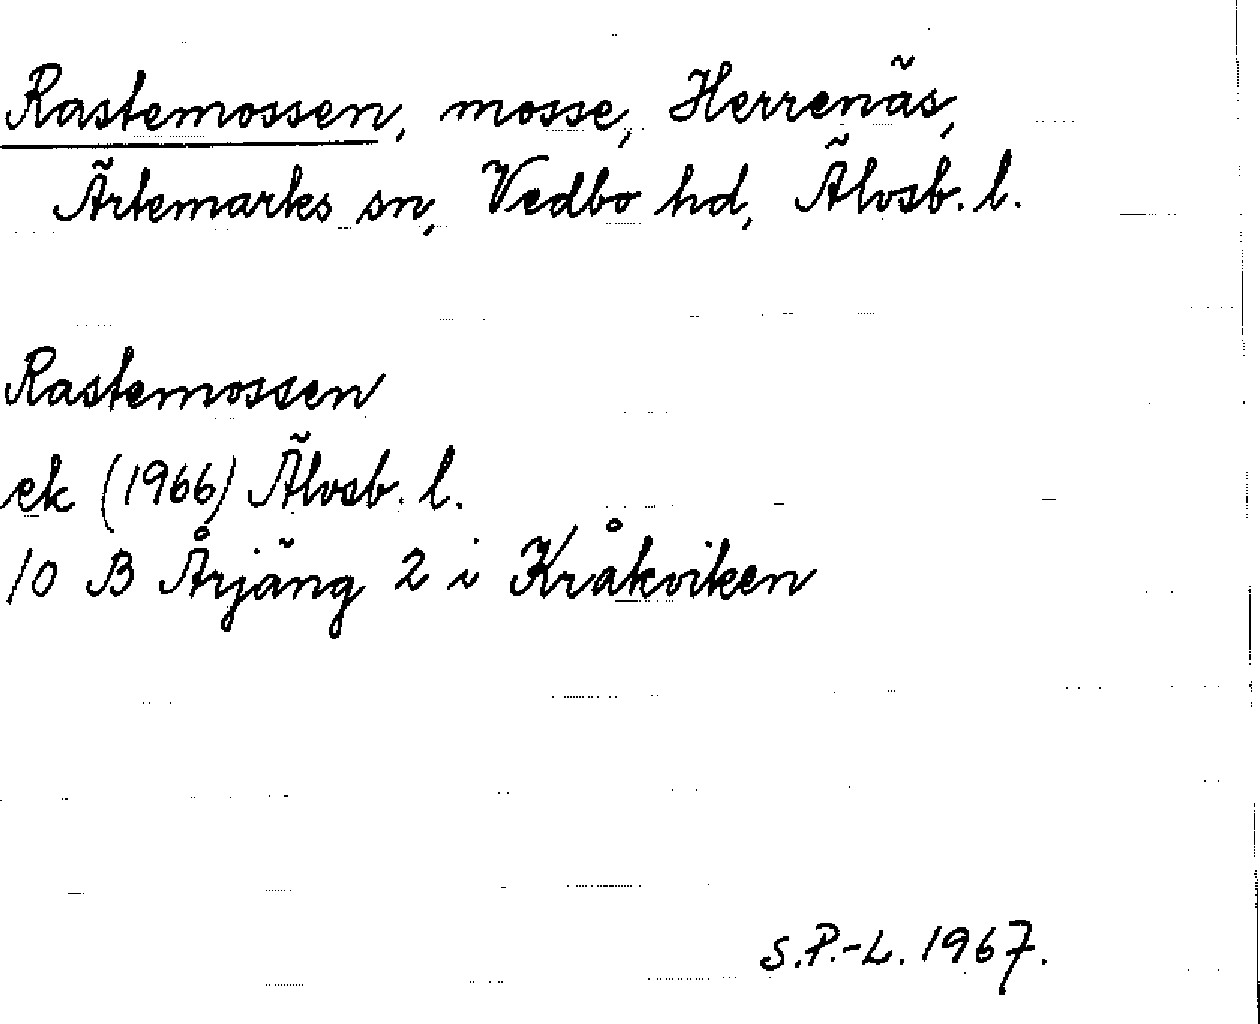 Rastemossen, mosse, Herrenäs,
Ärtemarks sn, Vedbo hd, Älvsb. l.
Rastemossen
ek (1966) Älvsb. l.
10 B Årjäng 2 i Kråkviken
S.P.-L. 1967.